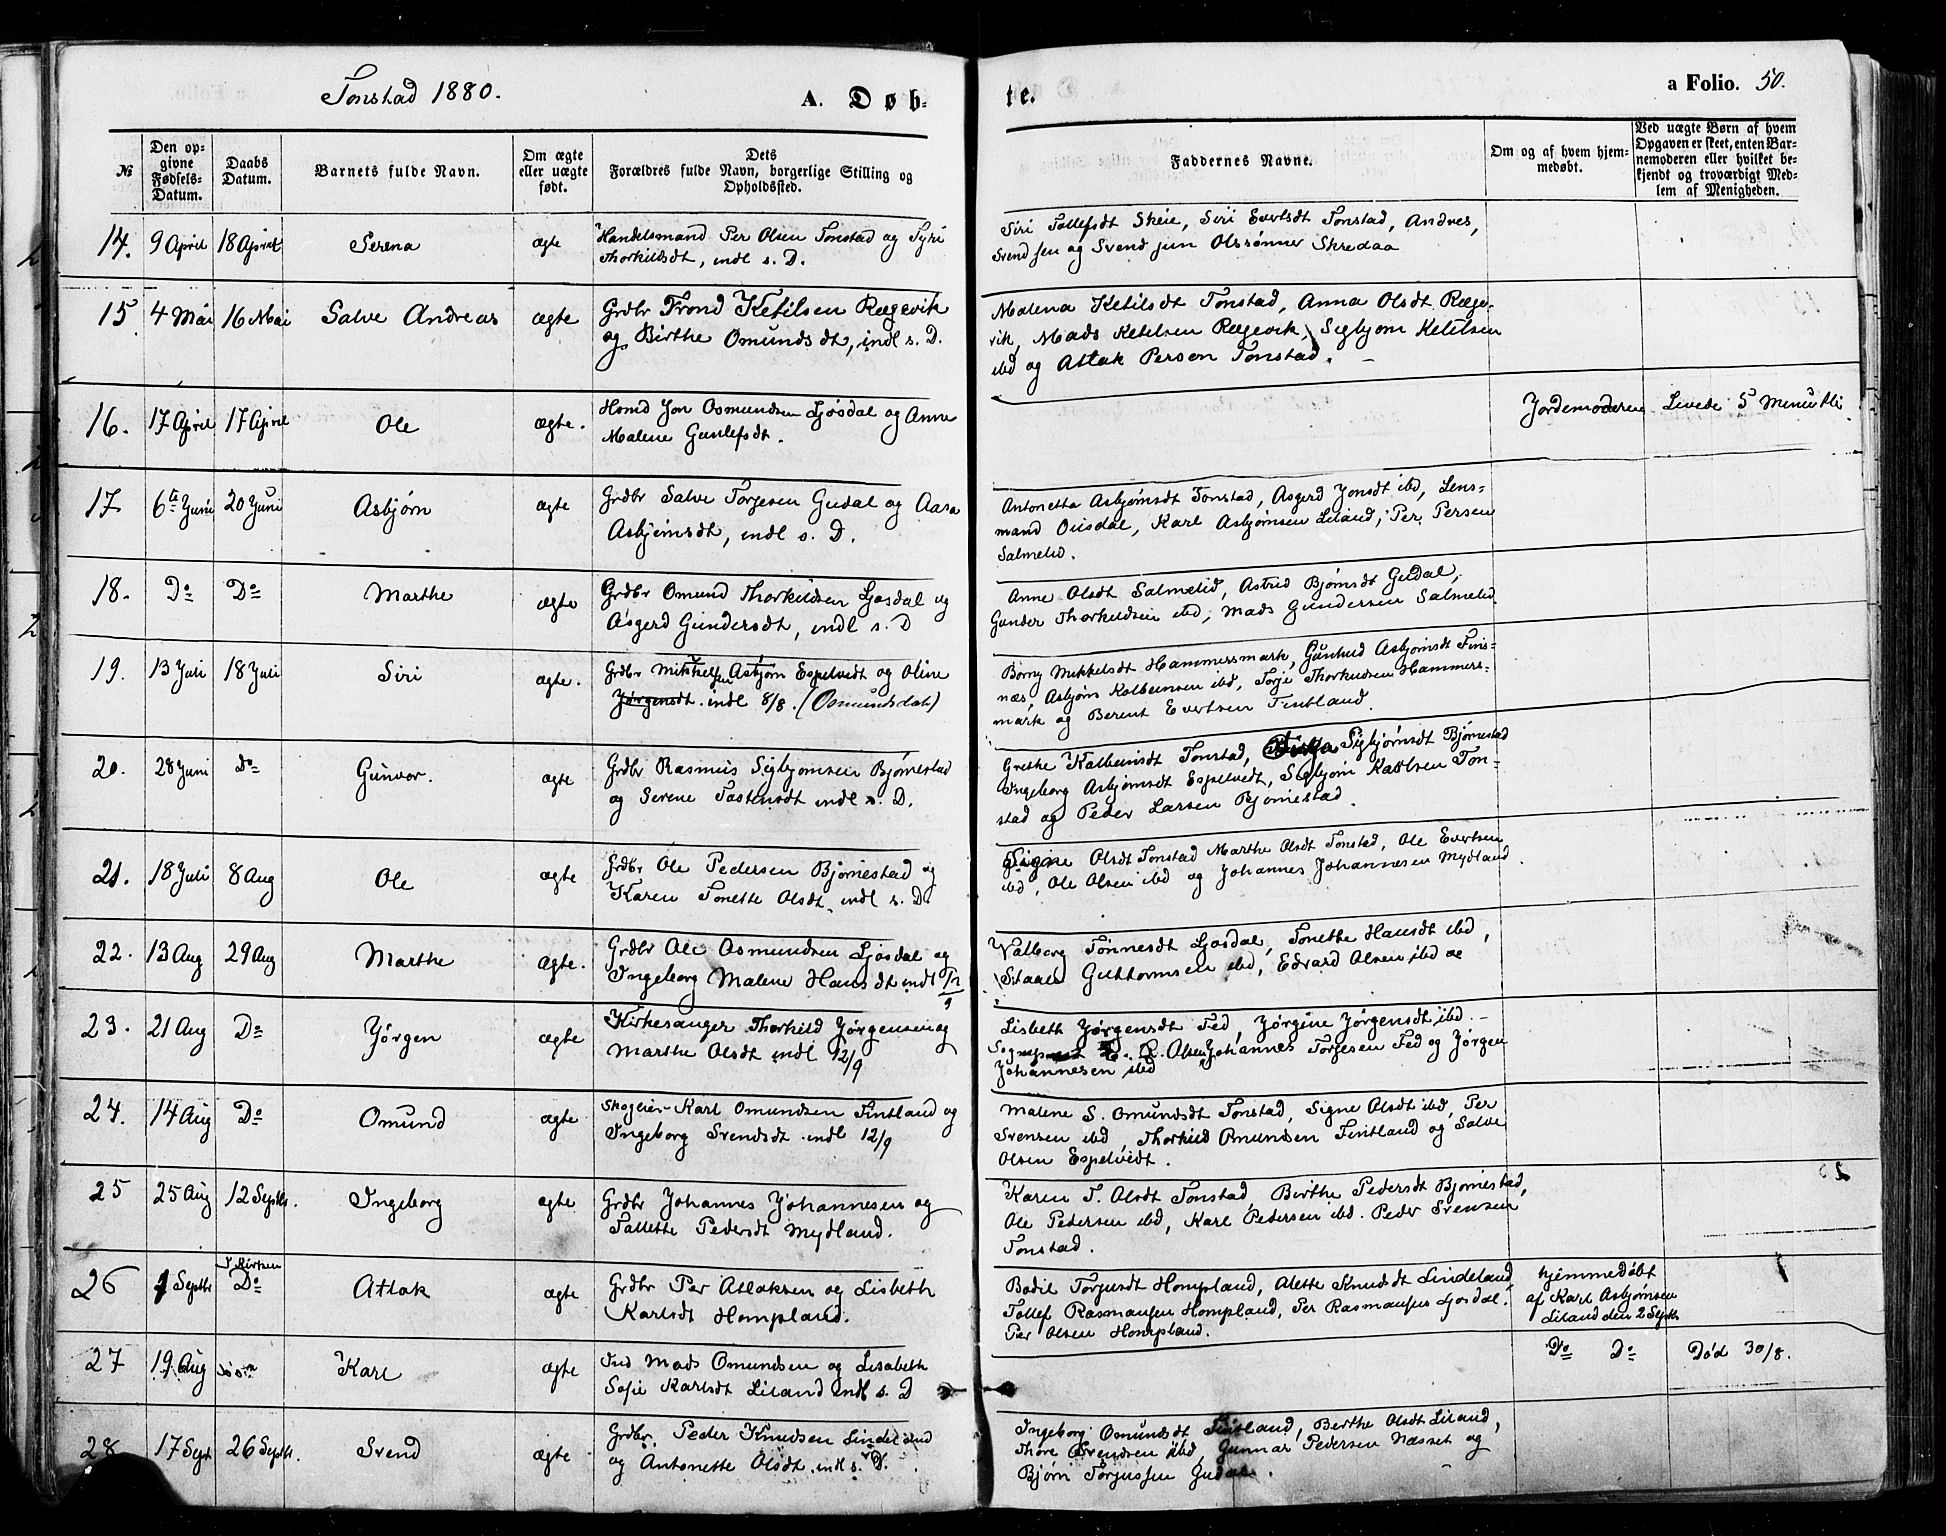 Tonstad 1880.
A. Døb-
te.
a Folio. 50.
№
Den op-
givne
Fødsels-
Datum.
Daabs
Datum.
Barnets fulde Navn.
Om ægte
eller uægte
født.
Dets
Forældres fulde Navn, borgerlige Stilling og
Opholdssted.
Faddernes Navne.
Om og af hvem hjem-
medøbt.
Ved uægte Børn af hvem
Opgaven er skeet, enten Bar-
nemoderen eller hvilket be-
kjendt og troværdigt Med-
lem af Menigheden.
14. 9 April 18 April Serena ægte
Handelsmand Per Olsen Tonstad og Syri
Thorkildsdt, indl s. D.
Siri Tollefsdt Skeie, Siri Evertsdt Tonstad, Andres,
Svend sen og Svend jun Olssønner Skredaa
15 4 Mai 16 Mai Salve Andreas ægte
Grdbr Trond Ketilsen Rægevik
og Birthe Omundsdt, indl s. D.
Malena Ketilsdt Tonstad, Anna Olsdt Ræge-
vik, Mads Ketelsen Rægevik, Sigbjørn Ketelsen
ibd og Atlak Persen Tonstad.
16. 17 April 17 April Ole ægte.
Hsmd Jon Osmundsen Ljosdal og Anne
Malene Gunlefsdt.
Jordemoderen Levede 5 Menutter
17 6te Juni 20 Juni Asbjørn ægte
Grdbr Salve Torjesen Gudal og Aasa
Asbjørnsdt, indl s. D.
Antonetta Asbjørnsdt Tonstad, Asgerd Jonsdt ibd, Lens-
mand Ousdal, Karl Asbjørnsen Liland, Per Persen
Salmelid.
18. Do Do Marthe ægte
Grdbr Omund Thorkildsen Ljosdal og
Asgerd Gundersdt, indl s. D
Anne Olsdt Salmelid, Astrid Bjørnsdt Gudal,
Gunder Thorkildsen ibd, Mads Gundersen Salmelid.
19. 13 Juli 18 Juli Siri ægte.
Grdbr Mikkelsen Asbjørn Espetvedt og Oline
Jørgensdt. indl 8/8. (Osmundsdat)
Borny Mikkelsdt Hammersmark, Gunhild Asbjørnsdt Fins-
næs, Asbjørn Kolbeinsen ibd, Torje Thorkildsen Hammers-
mark og Berent Evertsen Fintland.
20. 28 Juni do Gunvor. ægte
Grdbr Rasmus Sigbjørnsen Bjørnestad
og Serene Tastensdt indl s. D.
Grethe Kolbeinsdt Tonstad, Sigbjørnsdt Bjørnestad
Ingeborg Asbjørnsdt Espetvedt, Sigbjørn Karlsen Ton-
stad og Peder Larsen Bjørnestad.
21. 18 Juli 8 Aug Ole ægte
Grdbr Ole Pedersen Bjørnestad og
Karen Tonette Olsdt, indl s. D.
Signe Olsdt Tonstad Marthe Olsdt Tonstad, Ole Evertsen
ibd, Ole Olsen ibd og Johannes Johannesen Mydland.
22. 13 Aug 29 Aug Marthe ægte.
Grdbr Ole Osmundsen Ljosdal og
Ingeborg Malene Hansdt indl 12/9
Valborg Tonnesdt Ljosdal, Tonette Hansdt ibd,
Staale Guttormsen ibd, Edvard Olsen ibd
23. 21 Aug Do Jørgen ægte
Kirkesanger Thorkild Jørgensen og
Marthe Olsdt indl 12/9
Lisbeth Jørgensdt Fed, Jørgine Jørgensdt ibd. -
Sogneprest Olsen, Johannes Torjesen Fed og Jørgen
Johannesen ibd
24. 14 Aug Do Omund ægte
Skogeier Karl Omundsen Fintland og
Ingeborg Svendsdt. indl 12/9
Malene S. Omundsdt Tonstad, Signe Olsdt ibd, Per
Svensen ibd, Thorkild Omundsen Fintland og Salve
Olsen Espetvedt.
25 25 Aug 12 Septbr. Ingeborg ægte
Grdbr Johannes Johannesen og
Tallette Pedersdt Mydland.
Karen T. Olsdt Tonstad, Birthe Pedersdt Bjørnestad,
Ole Pedersen ibd, Karl Pedersen ibd. Peder Svensen
Tonstad.
26 1 Septbr I Kirken Do Atlak ægte
Grdbr Per Atlaksen og Lisbeth
Karlsdt Hompland.
Bodil Torjusdt Hompland, Alette Knudsdt Lindeland,
Tollef Rasmussen Hompland, Per Rasmussen Ljosdal.
Per Olsen Hompland.
hjemmedøbt
af Karl Asbjørnsen
Liland den 2 Septbr
27 19 Aug Karl ægte
Ind Mads Omundsen og Lisabeth
Sofie Karlsdt Liland indl s. D
Do Do Død 30/8.
28 17 Sept 26 Septbr. Svend ægte
Grdbr. Peder Knudsen Lindeland
og Antonette Olsdt. indl s. D.
Ingeborg Omundsdt Fintland, Berthe Olsdt Liland,
Thore Svendsen ibd, Gunnar Pedersen Næsset og
Bjørn Torjussen Gudal.